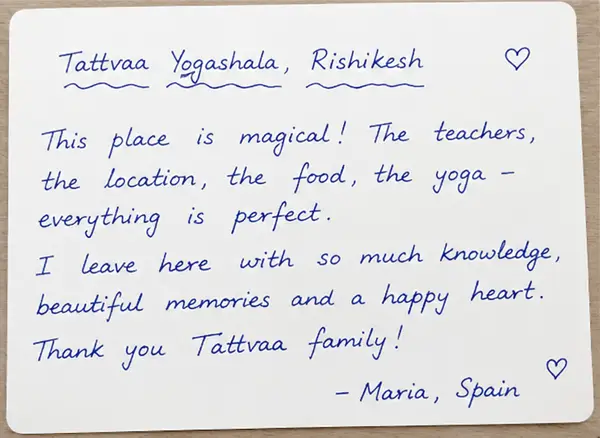 Tattvaa Yogashala, Rishikesh ♡
This place is magical! The teachers,
the location, the food, the yoga –
everything is perfect.
I leave here with so much knowledge,
beautiful memories and a happy heart.
Thank you Tattvaa family! ♡
– Maria, Spain